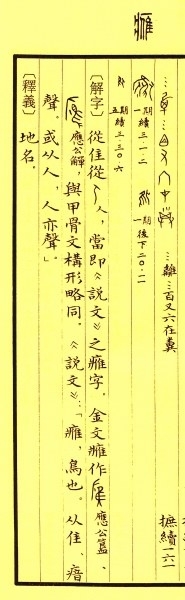 𤸰
…雝…百又六在糞
摭續一六一
一期 續三·一·二
一期 後下二〇·一一
五期 續三·三〇·六
〔解字〕從隹從人，當即《說文》之𤸰字。金文𤸰作 應公簋、
應公觶，與甲骨文構形略同。《說文》：「𤸰，鳥也。从隹，瘖
聲。或从人，人亦聲」。
〔釋義〕
地名。